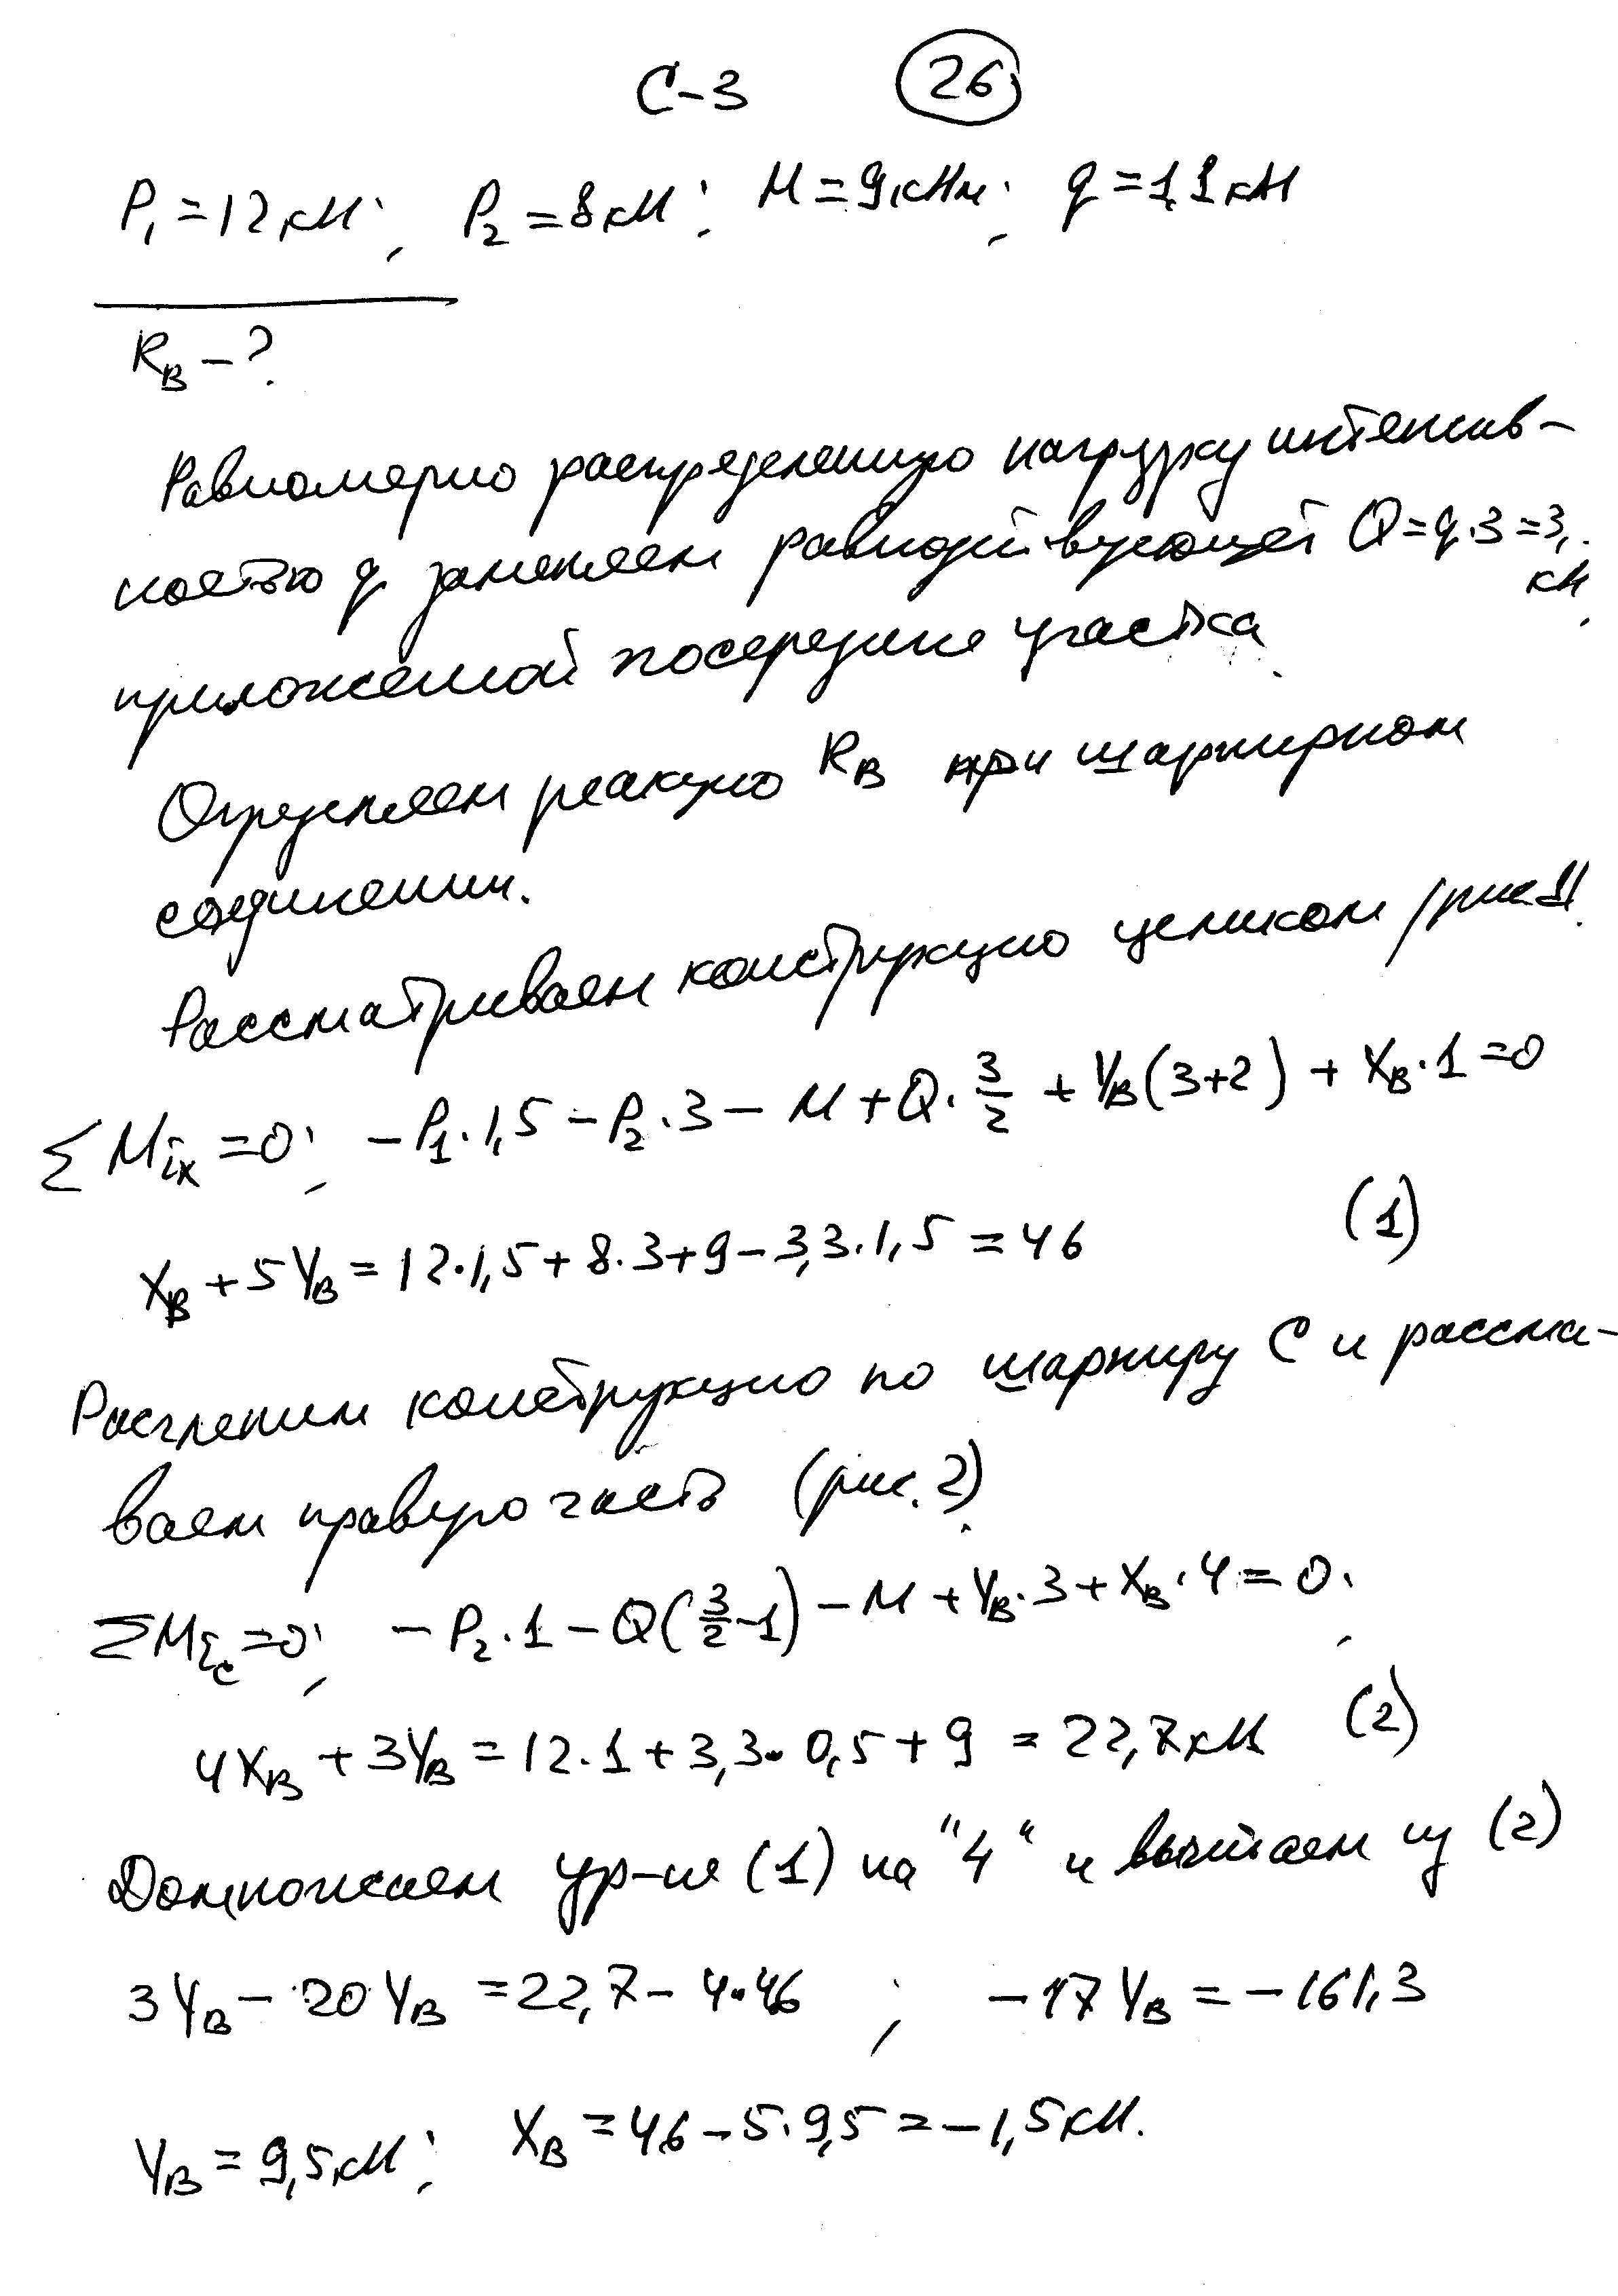 С-3 26
P₁ = 12 кН; P₂ = 8 кН; M = 9 кНм; q = 1,1 кН
R_B - ?
Равномерно распределенную нагрузку интенсив-
ностью q заменяем равнодействующей Q = q·3 = 3,
кН,
приложенной посередине участка.
Определяем реакцию R_B при шарнирном
соединении.
Рассматриваем конструкцию целиком (рис 1).
ΣM_ix = 0; -P₁·1,5 - P₂·3 - M + Q·3/2 + Y_B(3+2) + X_B·1 = 0
X_B + 5Y_B = 12·1,5 + 8·3 + 9 - 3,3·1,5 = 46 (1)
Расчленим конструкцию по шарниру С и рассма-
ваем правую часть (рис. 2).
ΣM_ic = 0; -P₂·1 - Q(3/2 - 1) - M + Y_B·3 + X_B·4 = 0;
4X_B + 3Y_B = 12·1 + 3,3·0,5 + 9 = 22,7 кН (2)
Домножаем ур-ие (1) на "4" и вычитаем из (2)
3Y_B - 20Y_B = 22,7 - 4·46 ; -17Y_B = -161,3
Y_B = 9,5 кН; X_B = 46 - 5·9,5 = -1,5 кН.